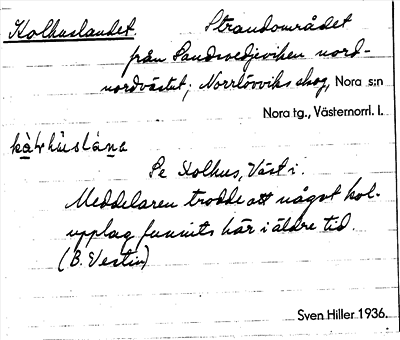 Kolhuslandet. Strandområdet
från Sandsvedjeviken nord-
nordvästut; Norrlövviks skog, Nora s:n
Nora tg., Västernorrl. l.
Se Kolhus, Väst i.
Meddelaren trodde att något kol-
upplag funnits här i äldre tid.
(B. Vestin)
Sven Hiller 1936.